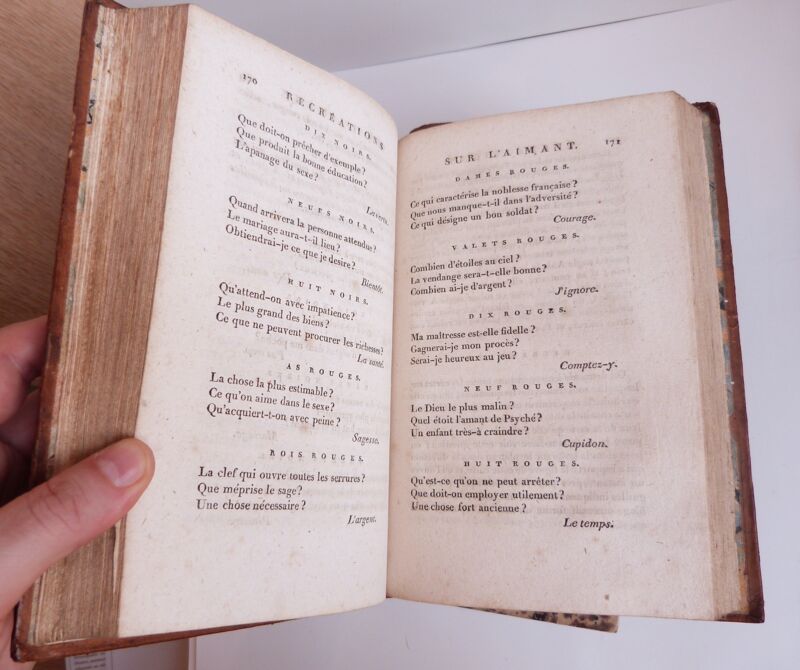 170
RECRÉATIONS
DIX NOIRS.
Que doit-on prêcher d'exemple?
Que produit la bonne éducation?
L'apanage du sexe?
La vertu.
NEUFS NOIRS.
Quand arrivera la personne attendue?
Le mariage aura-t-il lieu?
Obtiendrai-je ce que je desire?
Bientôt.
HUIT NOIRS.
Qu'attend-on avec impatience?
Le plus grand des biens?
Ce que ne peuvent procurer les richesses?
La santé.
AS ROUGES.
La chose la plus estimable?
Ce qu'on aime dans le sexe?
Qu'acquiert-t-on avec peine?
Sagesse.
ROIS ROUGES.
La clef qui ouvre toutes les serrures?
Que méprise le sage?
Une chose nécessaire?
L'argent.
SUR L'AIMANT. 171
DAMES ROUGES.
Ce qui caractérise la noblesse française?
Que nous manque-t-il dans l'adversité?
Ce qui désigne un bon soldat?
Courage.
VALETS ROUGES.
Combien d'étoiles au ciel?
La vendange sera-t-elle bonne?
Combien ai-je d'argent?
J'ignore.
DIX ROUGES.
Ma maîtresse est-elle fidelle?
Gagnerai-je mon procès?
Serai-je heureux au jeu?
Comptez-y.
NEUF ROUGES.
Le Dieu le plus malin?
Quel étoit l'amant de Psyché?
Un enfant très-à craindre?
Cupidon.
HUIT ROUGES.
Qu'est-ce qu'on ne peut arrêter?
Que doit-on employer utilement?
Une chose fort ancienne?
Le temps.